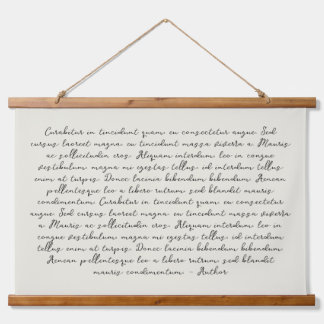 Curabitur in tincidunt quam, eu consectetur augue. Sed
cursus laoreet magna, eu tincidunt massa viverra a. Mauris
ac sollicitudin eros. Aliquam interdum leo in congue
vestibulum, magna mi egestas tellus, id interdum tellus
enim at turpis. Donec lacinia bibendum bibendum. Aenean
pellentesque leo a libero rutrum, sed blandit mauris
condimentum. Curabitur in tincidunt quam, eu consectetur
augue. Sed cursus laoreet magna, eu tincidunt massa viverra
a. Mauris ac sollicitudin eros. Aliquam interdum leo in
congue vestibulum, magna mi egestas tellus, id interdum
tellus enim at turpis. Donec lacinia bibendum bibendum.
Aenean pellentesque leo a libero rutrum, sed blandit
mauris condimentum. - Author